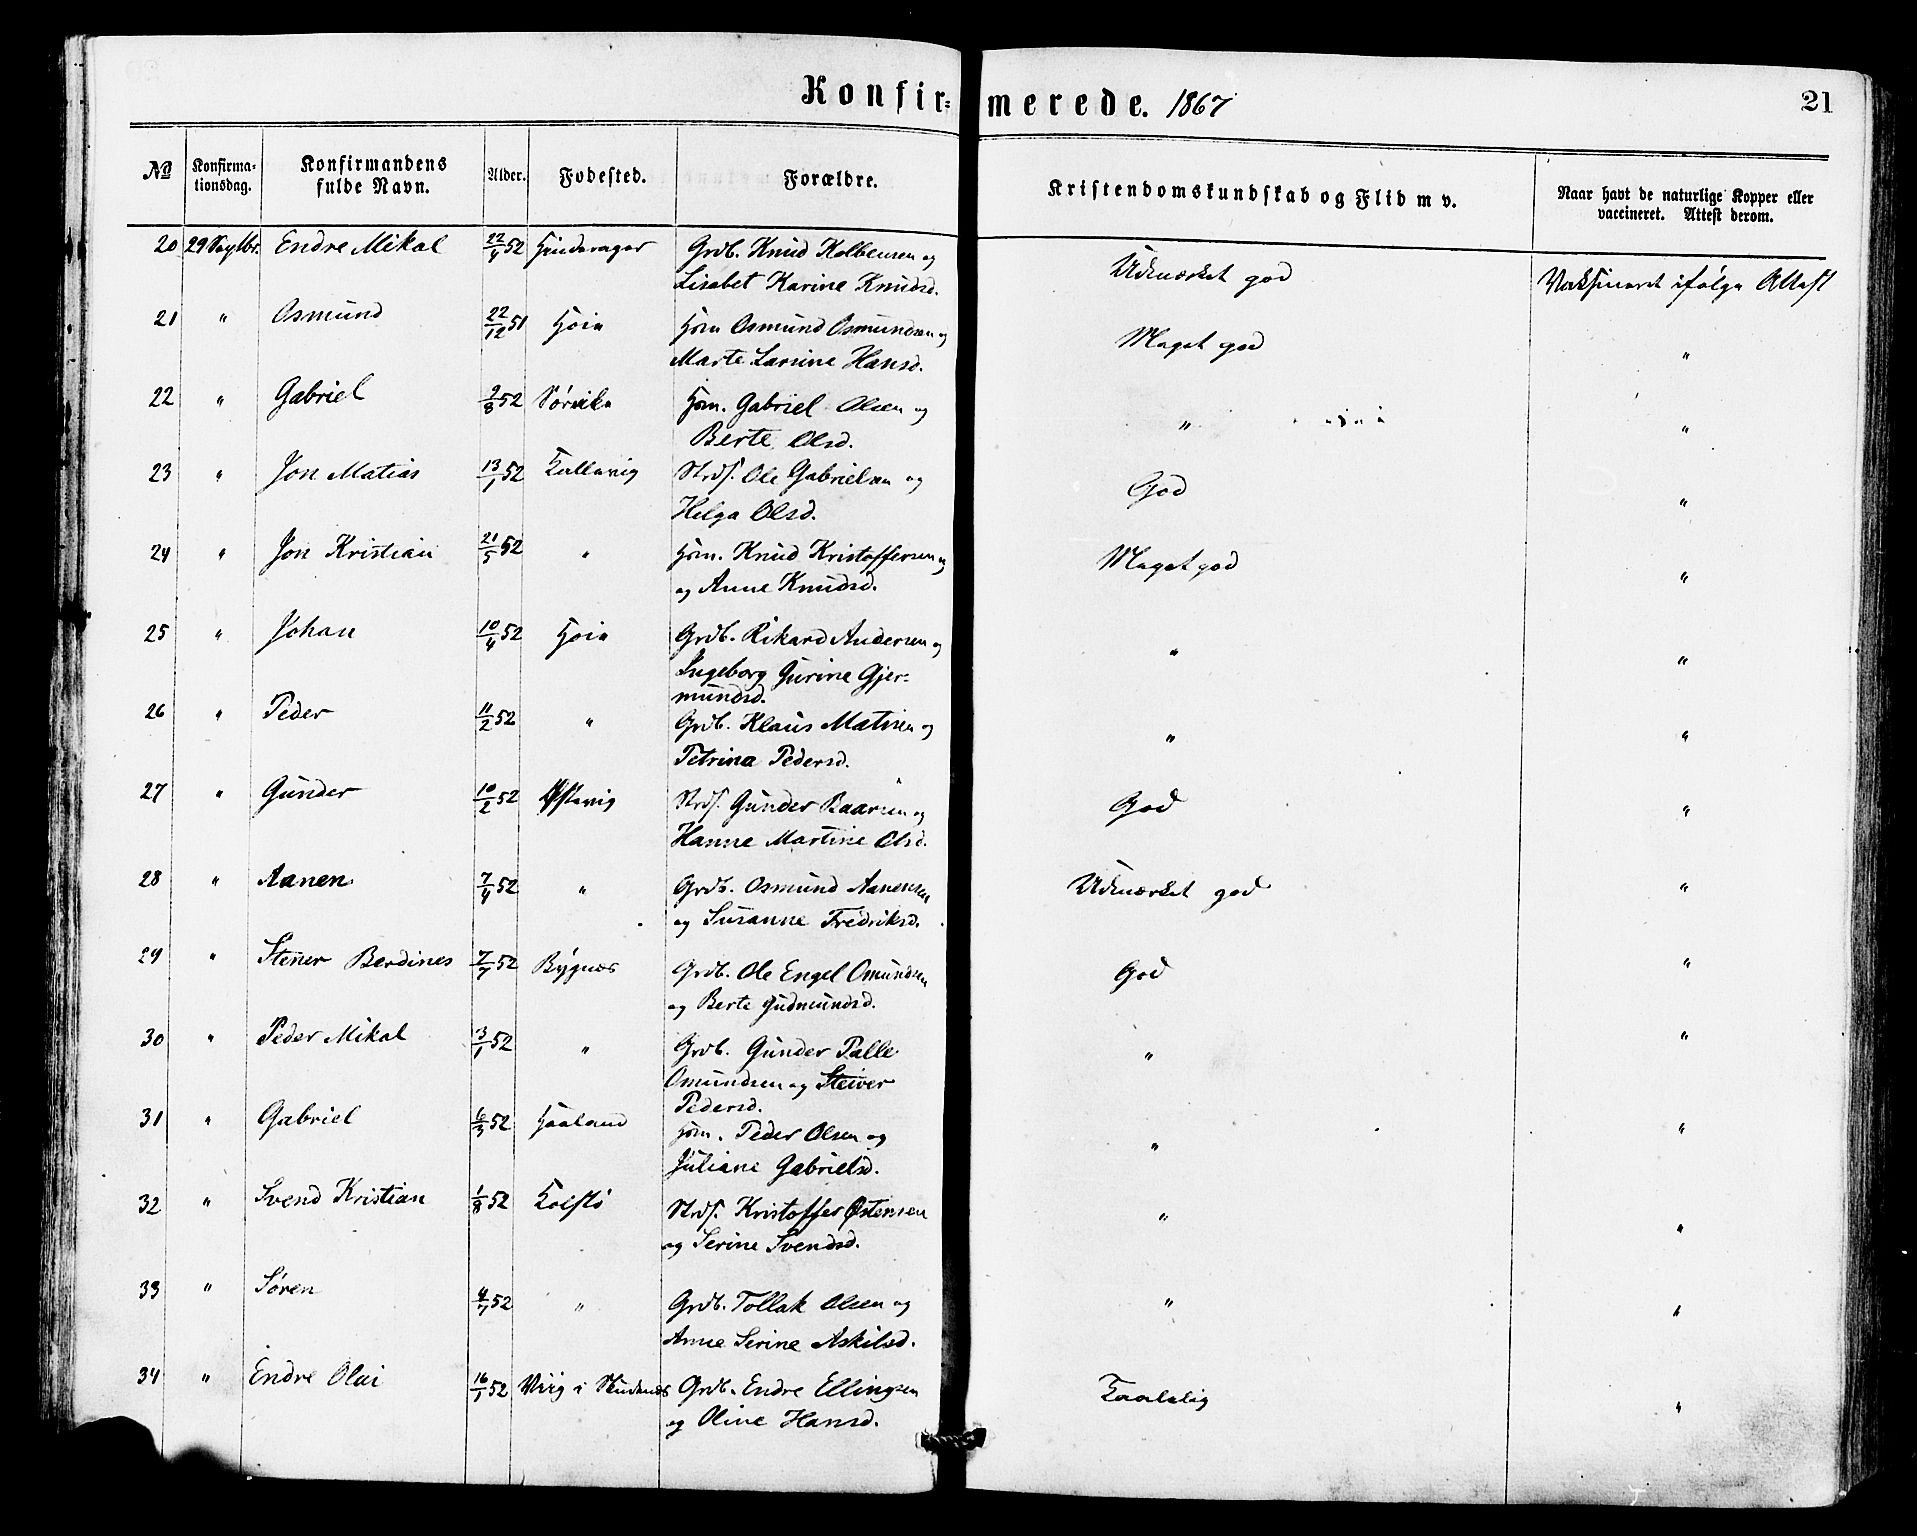 Konfir- merede. 1867 21
№ Konfirma-tionsdag. Konfirmandens fulde Navn. Alder. Fødested. Forældre. Kristendomskundskab og Flid m v. Naar havt de naturlige Kopper eller vaccineret. Attest derom.
20 29 Septbr. Endre Mikal 22/4 52 Grdb. Knud Kolbensen og
Lisabet Karine Knudsd. Udmærket god Vaksineret ifølge Attest
21 " Osmund 22/12 51 Høie Hsm Osmund Osmundsen og
Marte Larsine Hansd. Meget god "
22 " Gabriel 9/8 52 Sørvik Hsm. Gabriel Olsen og
Berte Olsd. " "
23 " Jon Matias 13/1 52 Strds. Ole Gabrielsen og
Helga Olsd. God "
24 " Jon Kristian 21/5 52 " Hsm. Knud Kristoffersen og
og Anne Knudsd. Meget god "
25 " Johan 10/4 52 Høie Grdb. Rikard Andersen og
Ingeborg Gurine Gjer-
mundsd. " "
26 " Peder 11/2 52 " Grdb. Klaus Matisen og
Petrina Pedersd. " "
27 " Gunder 10/2 52 Strds. Gunder Baarsen og
Hanne Martine Olsd. God "
28 " Aanen 7/4 52 " Grdb. Osmund Aanensen
og Susanne Fredriksd. Udmærket god "
29 " Stener Berdines 7/7 52 Bygnes Grdb. Ole Engel Omundsen
og Berte Gudmundsd. God "
30 " Peder Mikal 13/1 52 " Grdb. Gunder Palle
Omundsen og
Pedersd. " "
31 " Gabriel 6/3 52 Haaland Hsm. Peder Olsen og
Juliane Gabrielsd. " "
32 " Svend Kristian 1/8 52 Kolstø Strds. Kristoffer Østensen
og Serine Svendsd. " "
33 " Søren 4/7 52 " Grdb. Tollak Olsen og
Anne Serine Askilsd. " "
34 " Endre Olai 16/1 52 Viig i Skudenes Grdb. Endre Ellingsen
og Oline Hansd. Taalelig "